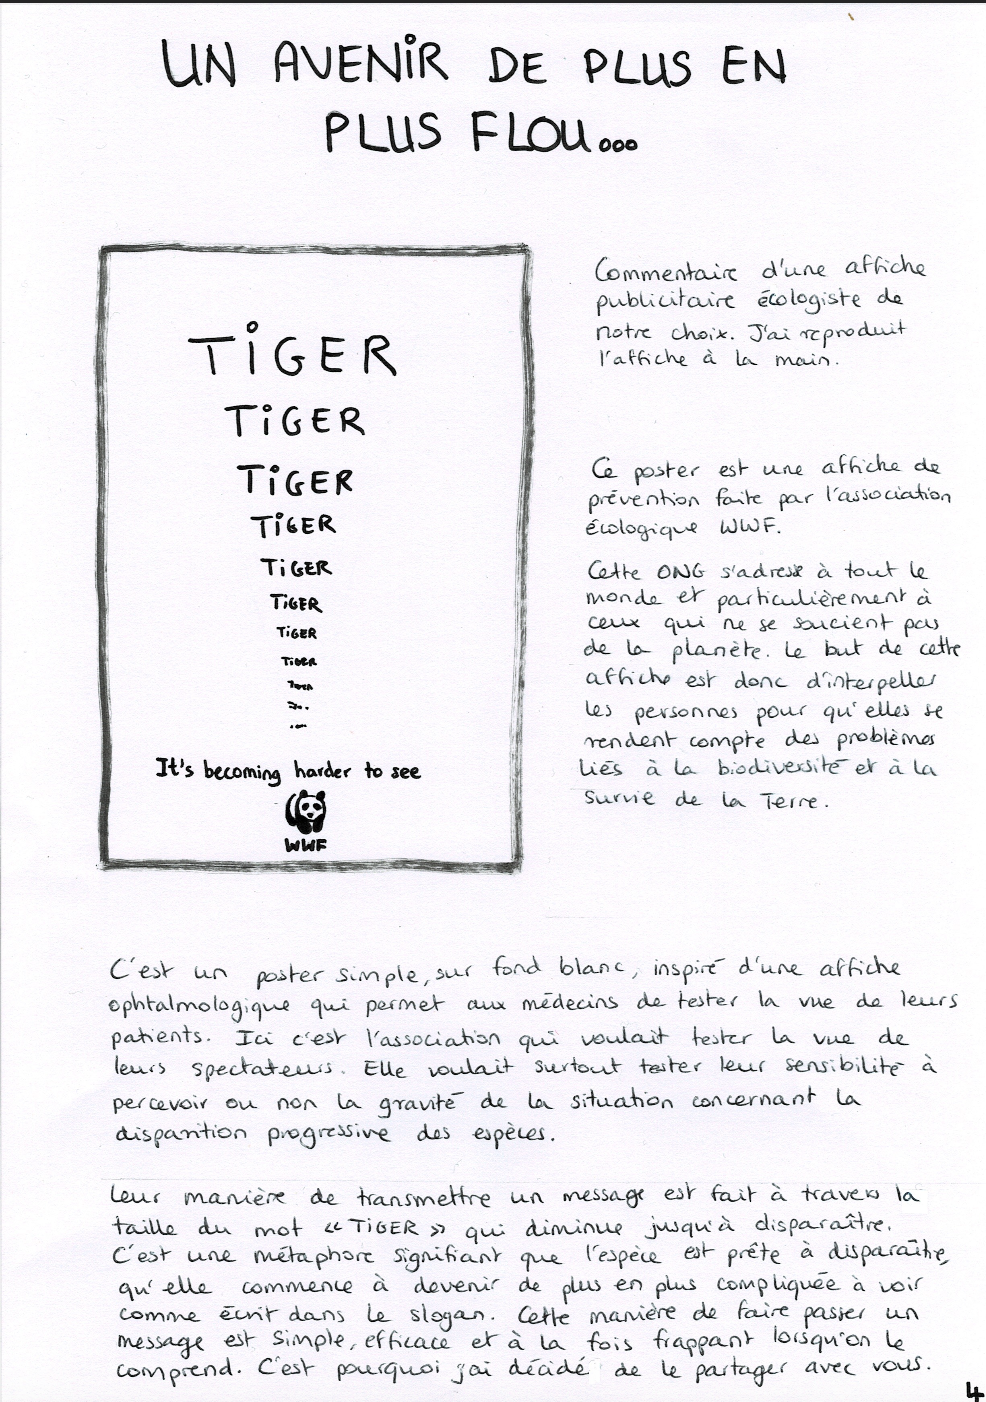 UN AVENiR DE PLUS EN
PLUS FLOU...
TiGER
TiGER
TiGER
TiGER
TiGER
TiGER
TiGER
TiGER
It's becoming harder to see
WWF
Commentaire d'une affiche
publicitaire écologiste de
notre choix. J'ai reproduit
l'affiche à la main.
Ce poster est une affiche de
prévention faite par l'association
écologique WWF.
Cette ONG s'adresse à tout le
monde et particulièrement à
ceux qui ne se soucient pas
de la planète. Le but de cette
affiche est donc d'interpeller
les personnes pour qu'elles se
rendent compte des problèmes
liés à la biodiversité et à la
survie de la Terre.
C'est un poster simple, sur fond blanc, inspiré d'une affiche
ophtalmologique qui permet aux médecins de tester la vue de leurs
patients. Ici c'est l'association qui voulait tester la vue de
leurs spectateurs. Elle voulait surtout tester leur sensibilité à
percevoir ou non la gravité de la situation concernant la
disparition progressive des espèces.
Leur manière de transmettre un message est fait à travers la
taille du mot « TiGER » qui diminue jusqu'à disparaître.
C'est une métaphore signifiant que l'espèce est prête à disparaître,
qu'elle commence à devenir de plus en plus compliquée à voir
comme écrit dans le slogan. Cette manière de faire passer un
message est simple, efficace et à la fois frappant lorsqu'on le
comprend. C'est pourquoi j'ai décidé de le partager avec vous.
4